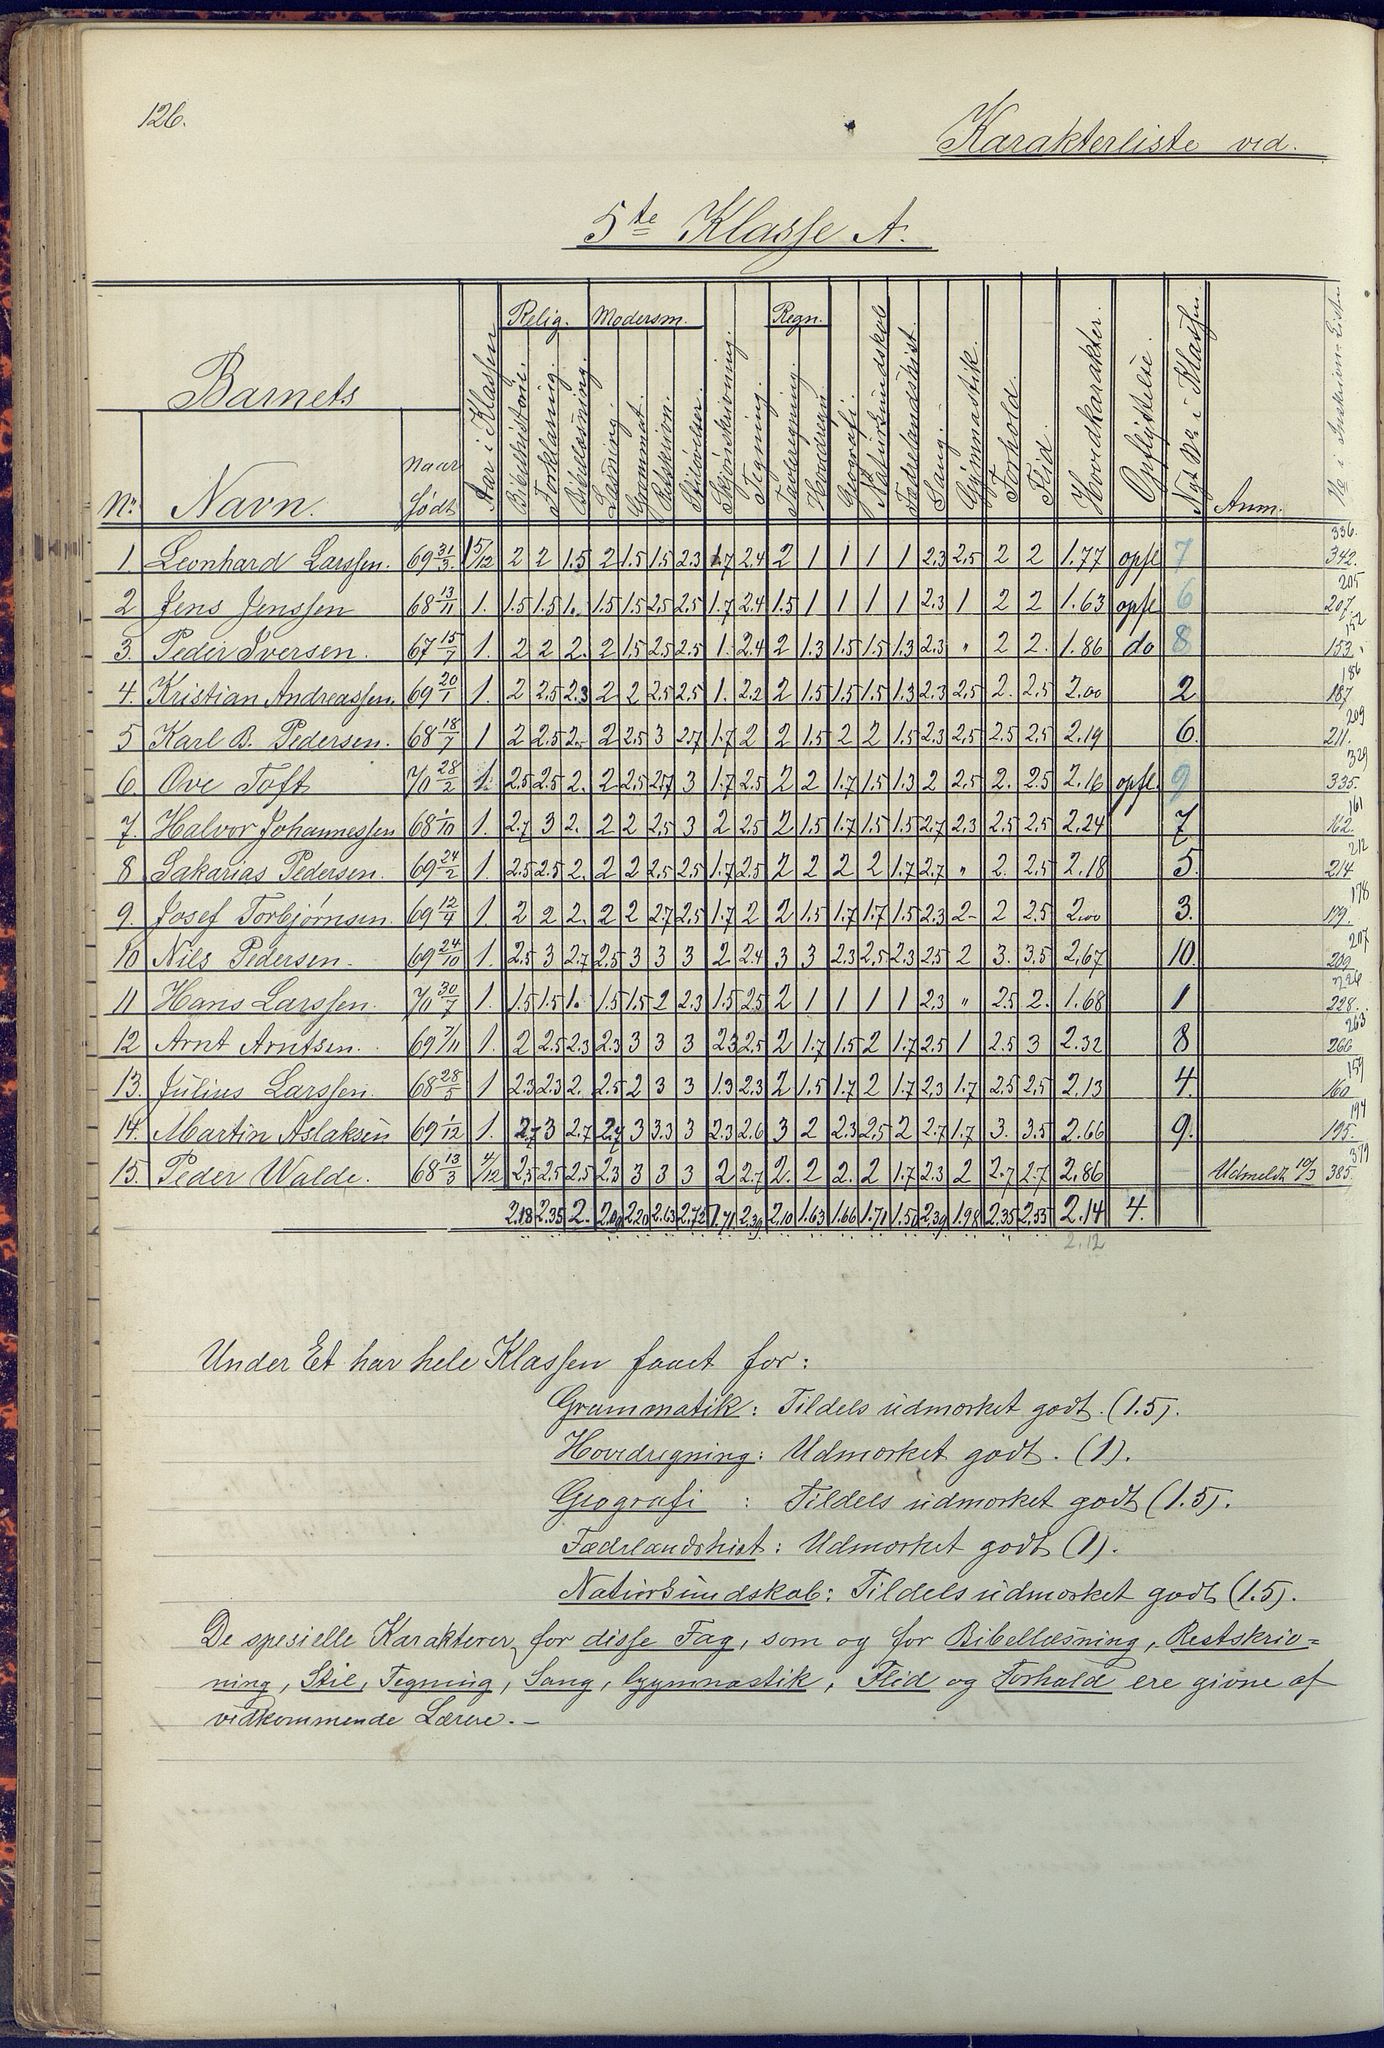 126.
Karakterliste ved.
5te Klasse A.
Barnets
Nr. Navn. Naar født Aar i Klassen Relig. Bibelhistorie. Forklaring. Bibellæsning. Modersm. Læsning. Grammat. Retskrivn. Stiløvelser. Skjønskrivning. Tegning. Regn. Tavleregning. Hovedregn. Geografi. Naturkundskab Fædrelandshist. Sang. Gymnastik. Forhold. Flid. Hovedkarakter. Opflyttelse. Nyt Nr. i Klassen. Anm.
336.
1. Leonhard Larssen. 69 31/3. 1 5/12 2 2 1.5 2 1.5 1.5 2.3 1.7 2.4 2 1 1 1 1 2.3 2.5 2 2 1.77 opfl 7 342.
205
2 Jens Jenssen 68 13/11 1. 1.5 1.5 1. 1.5 1.5 2.5 2.5 1.7 2.4 1.5 1 1 1 1 2.3 1 2 2 1.63 opfl 6 207.
152
3. Peder Iversen. 67 15/7 1. 2 2 2. 2 1.5 2.5 2.5 1. 2.4 2 1.3 1.5 1.5 1.3 2.3 " 2 2. 1.86 do 8 153.
186
4. Kristian Andreassen. 69 20/1 1. 2 2.5 2.3 2 2 2.5 2.5 1. 2.2 2 1.5 1.5 1.5 1.3 2.3 2.5 2. 2.5 2.00 2 187
209
5 Karl B. Pedersen. 68 18/7 1 2 2.5 2. 2 2.5 3 2.7 1.7 2 2 1.5 2 2 1.5 2.3 2.5 2.5 2.5 2.19 6. 211.
329
6. Ove Toft 70 28/2 1. 2.5 2.5 2. 2 2.5 2.7 3 1.7 2.5 2 2 1.7 1.5 1.3 2 2.5 2. 2.5 2.16 opfl. 9 335.
161
7. Halvor Johannessen 68 1/10 1. 2.7 3 2. 2 2 2.5 3 2 2.5 2 1.5 1.7 1.5 1.5 2.7 2.3 2.5 2.5 2.24 7 162.
212
8 Sakarias Pedersen. 69 24/2 1. 2.5 2.5 2. 2 2 2.5 2.5 1.7 2.5 2 2 2 2 1.7 2.7 " 2. 2.5 2.18 5. 214
178
9. Josef Torbjørnsen. 69 12/4 1. 2 2 2. 2 2 2.7 2.5 1.7 2 2 1.5 1.7 1.7 1.5 2.3 2- 2 2.5 2.00 3. 179.
207
10 Nils Pedersen. 69 24/10 1. 2.5 3 2.7 2.5 3 3 3 2 2.4 3 3 2.3 2.5 2.3 2.5 2 3. 3.5 2.67 10. 209
226
11 Hans Larssen. 70 30/7 1. 1.5 1.5 1. 1.5 1.5 2 2.3 1.5 2.5 2 1 1 1 1 2.3 " 2.5 2. 1.68 1 228.
263
12 Arnt Arntsen. 69 7/11 1. 2 2.5 2.3 2.3 3 3 3 2.3 2.5 2 1.7 1.5 2 1.7 2.5 1 2.5 3 2.32 8 266
159
13. Julius Larssen. 68 28/5 1 2.3 2.3 2. 2.5 2 3 3 1.3 2.3 2 1.5 1.7 2 1.7 2.3 1.7 2.5 2.5 2.13 4. 160
194
14. Martin Aslaksen 69 1/12 1. 2.7 3 2.7 2.7 3 3.3 3 2.3 2.6 3 2 2.3 2.5 2 2.7 1.7 3. 3.5 2.66 9. 195.
379
15. Peder Walde. 68 13/3 4/12 2.5 2.5 2.5 2.3 3 3 3 2 2.7 2. 2 2. 2 1.7 2.3 2 2.7 2.7 2.86 Udmeldt 10/3 385.
2.18 2.35 2. 2.09 2.20 2.63 2.73 1.71 2.39 2.10 1.63 1.66 1.71 1.50 2.39 1.98 2.35 2.55 2.14 4.
2.12
Under Et har hele Klassen faaet for:
Grammatik: Tildels udmærket godt. (1.5).
Hovedregning: Udmærket godt. (1).
Geografi : Tildels udmærket godt (1.5).
Fædrelandshist: Udmærket godt (1).
Naturkundskab: Tildels udmærket godt (1.5).
De spesielle Karakterer for disse Fag, som og for Bibellæsning, Retskriv=
ning, Stil, Tegning, Sang, Gymnastik, Flid og Forhold ere givne af
vedkommende Lærere. —